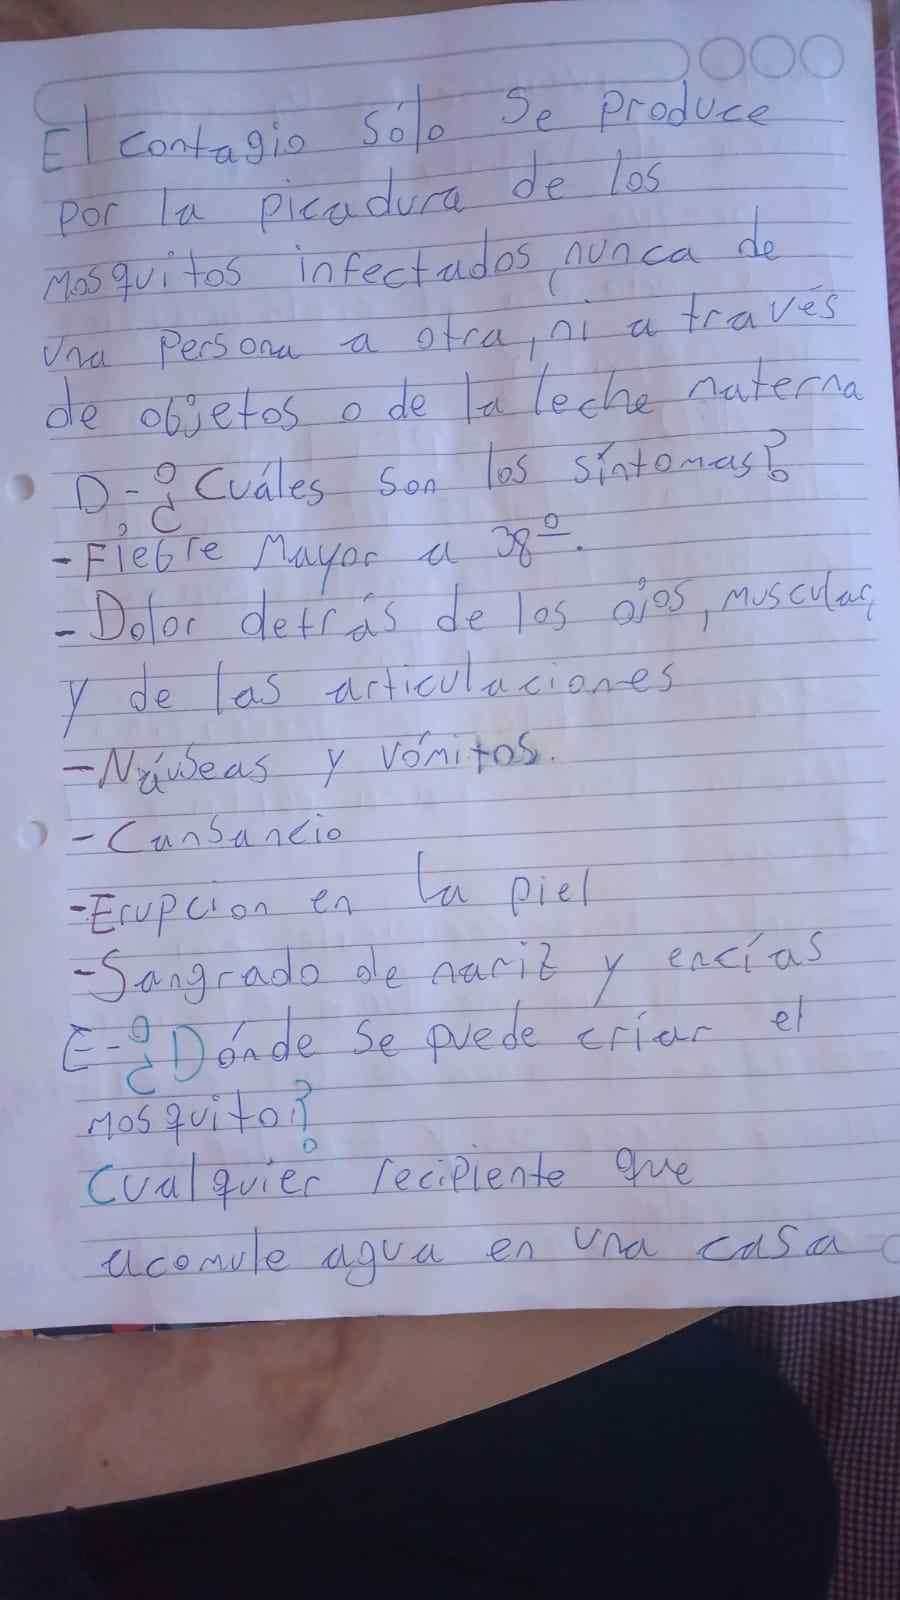 El contagio sólo se produce
por la picadura de los
mosquitos infectados, nunca de
una persona a otra, ni a través
de objetos o de la leche naterna
D-¿Cuáles son los síntomas?
-Fiebre Mayor a 38º.
-Dolor detrás de los ojos, muscular,
y de las articulaciones
-Náuseas y vómitos.
-Cansancio
-Erupcion en la piel
-Sangrado de nariz y encías
E-¿Dónde se puede criar el
mosquito?
Cualquier recipiente que
acomule agua en una casa